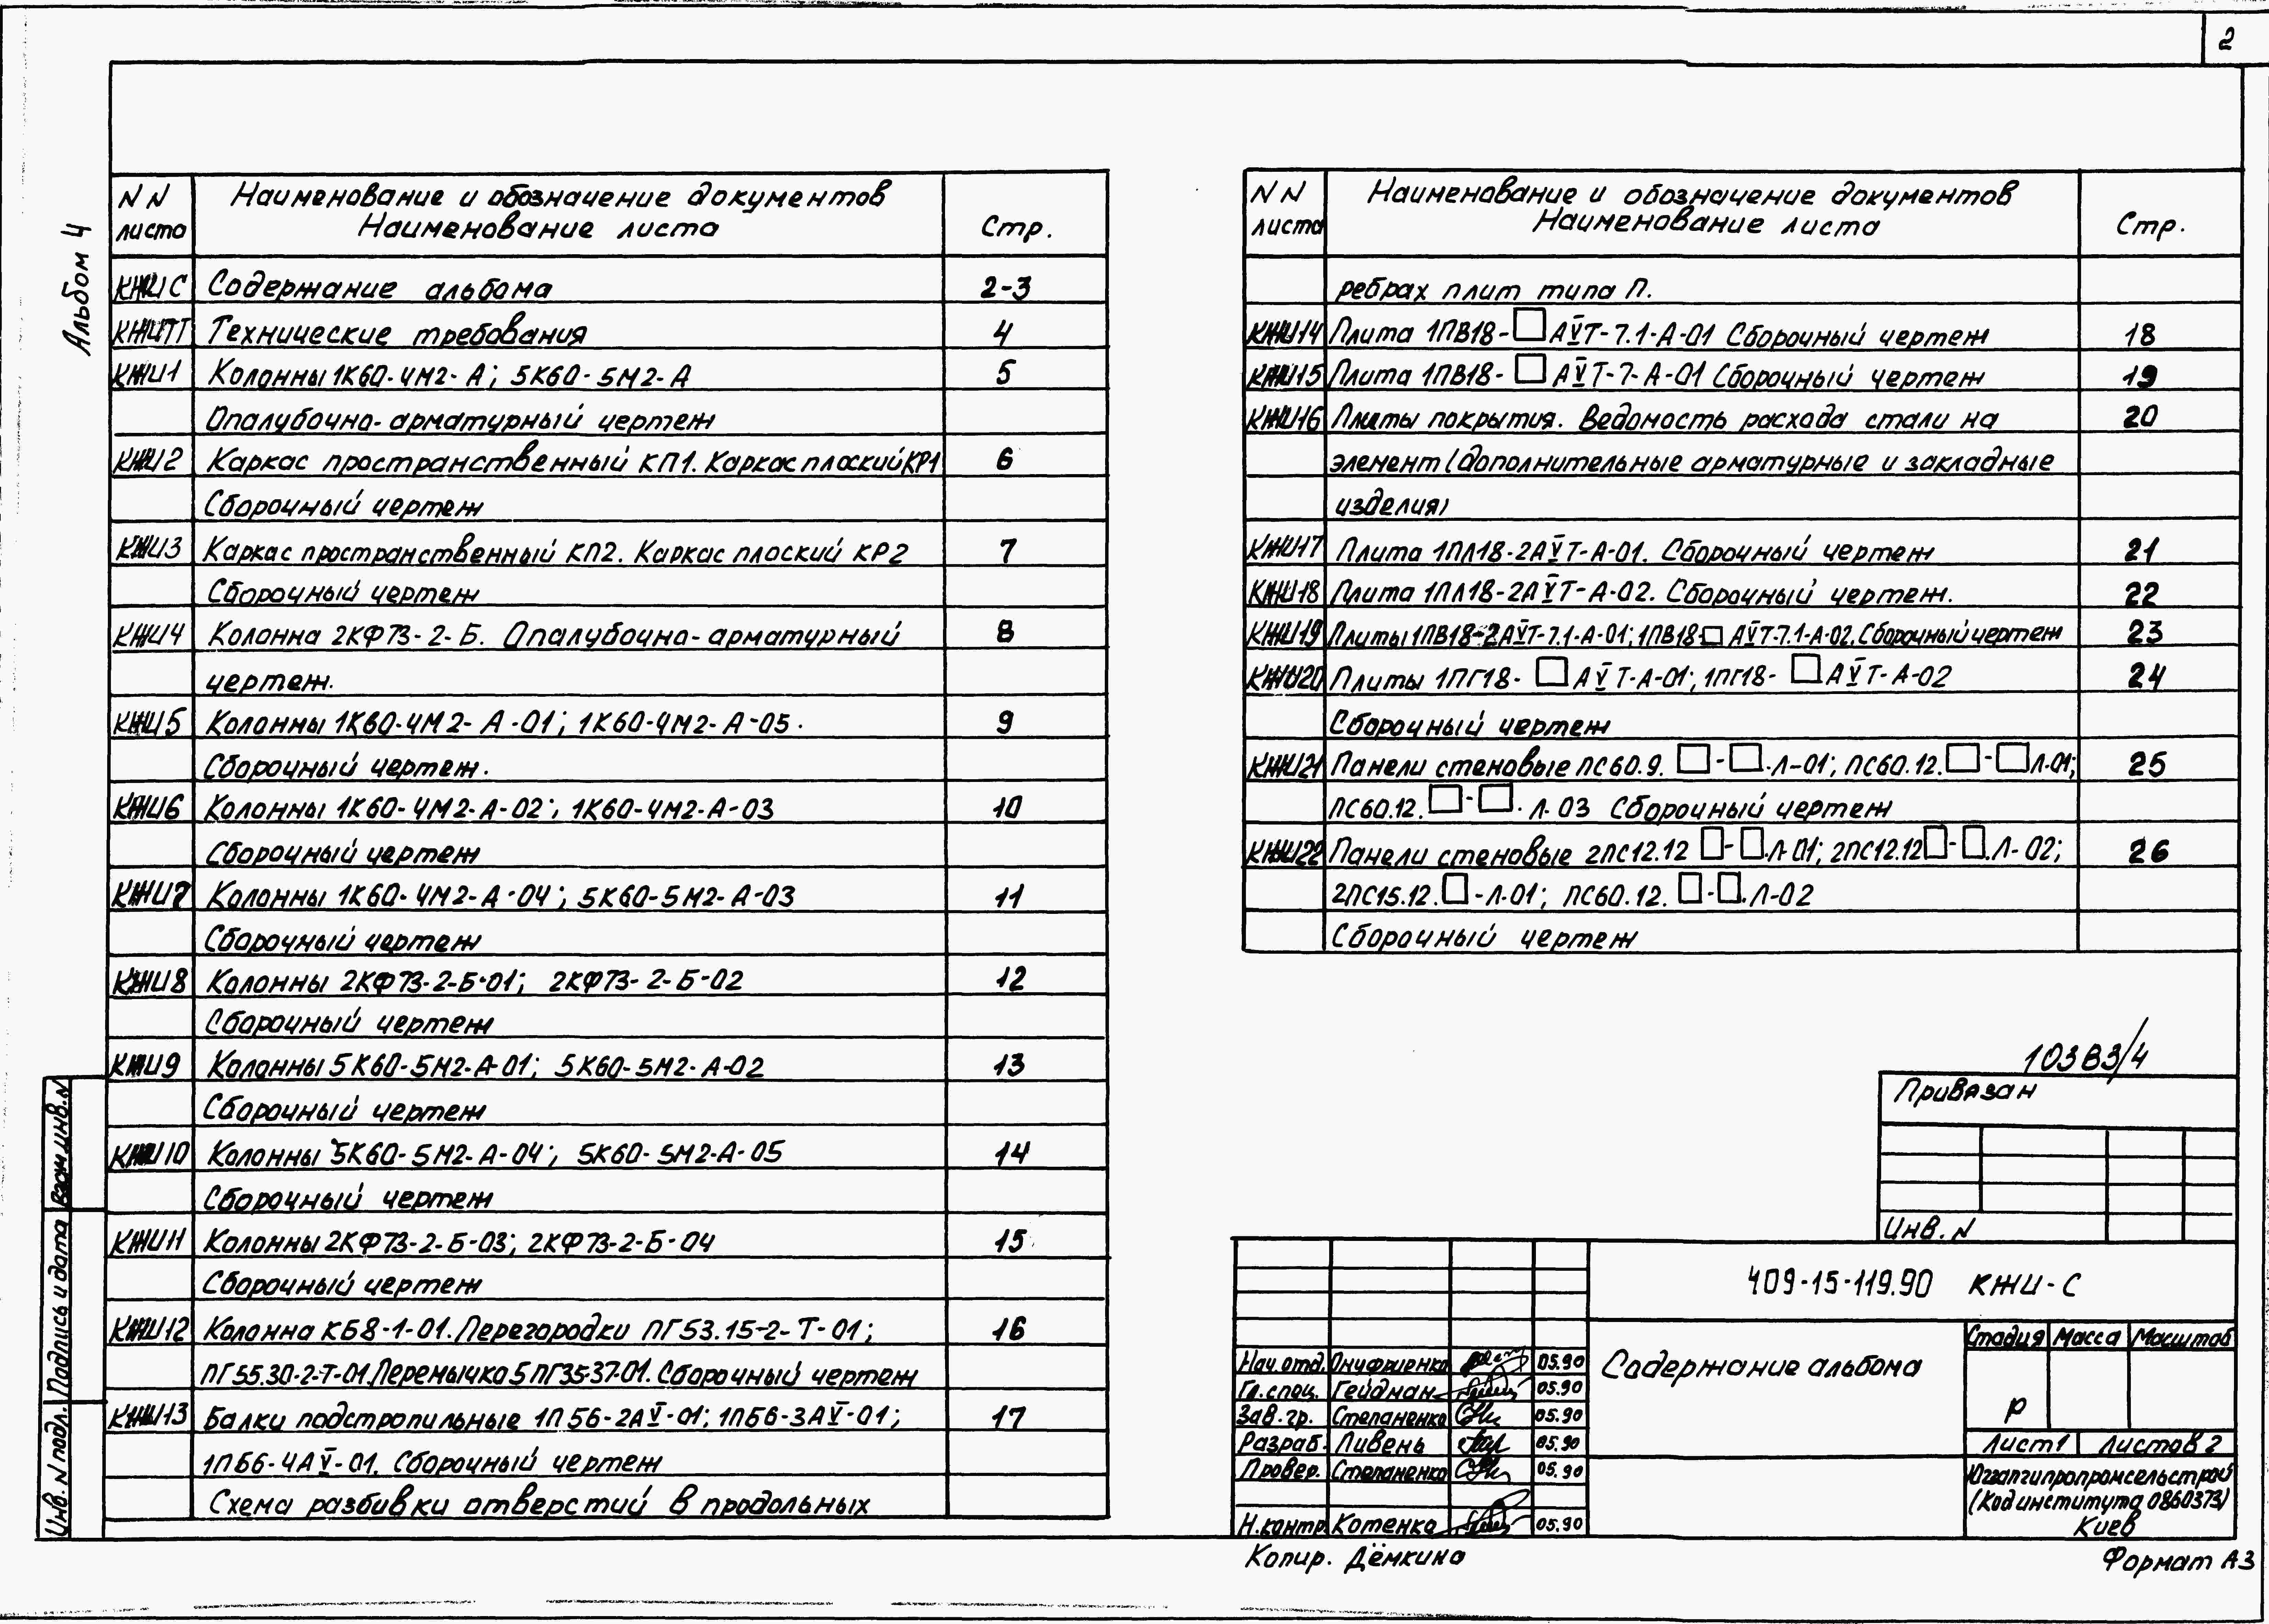 2
Альбом 4
NN листа
Наименование и обозначение документов
Наименование листа
Стр.
КЖИС Содержание альбома 2-3
КЖИТТ Технические требования 4
КЖИ1 Колонны 1К60-4М2-А; 5К60-5М2-А 5
Опалубочно-арматурный чертеж
КЖИ2 Каркас пространственный КП1. Каркас плоский КР1 6
Сборочный чертеж
КЖИ3 Каркас пространственный КП2. Каркас плоский КР2 7
Сборочный чертеж
КЖИ4 Колонна 2КФ73-2-Б. Опалубочно-арматурный 8
чертеж.
КЖИ5 Колонны 1К60-4М2-А-01; 1К60-4М2-А-05. 9
Сборочный чертеж.
КЖИ6 Колонны 1К60-4М2-А-02; 1К60-4М2-А-03 10
Сборочный чертеж
КЖИ7 Колонны 1К60-4М2-А-04; 5К60-5М2-А-03 11
Сборочный чертеж
КЖИ8 Колонны 2КФ73-2-Б-01; 2КФ73-2-Б-02 12
Сборочный чертеж
КЖИ9 Колонны 5К60-5М2-А-01; 5К60-5М2-А-02 13
Сборочный чертеж
КЖИ10 Колонны 5К60-5М2-А-04; 5К60-5М2-А-05 14
Сборочный чертеж
КЖИ11 Колонны 2КФ73-2-Б-03; 2КФ73-2-Б-04 15
Сборочный чертеж
КЖИ12 Колонна КБ8-1-01. Перегородки ПГ53.15-2-Т-01; 16
ПГ55.30-2-Т-01. Перемычка 5ПГ35-37-01. Сборочный чертеж
КЖИ13 Балки подстропильные 1ПБ6-2АV-01; 1ПБ6-3АV-01; 17
1ПБ6-4АV-01. Сборочный чертеж
Схема разбивки отверстий в продольных
NN листа
Наименование и обозначение документов
Наименование листа
Стр.
ребрах плит типа П.
КЖИ14 Плита 1ПВ18-□АVТ-7.1-А-01 Сборочный чертеж 18
КЖИ15 Плита 1ПВ18-□АVТ-7-А-01 Сборочный чертеж 19
КЖИ16 Плиты покрытия. Ведомость расхода стали на 20
элемент (дополнительные арматурные и закладные
изделия)
КЖИ17 Плита 1ПЛ18-2АVТ-А-01. Сборочный чертеж 21
КЖИ18 Плита 1ПЛ18-2АVТ-А-02. Сборочный чертеж. 22
КЖИ19 Плиты 1ПВ18-2АVТ-7.1-А-01; 1ПВ18-□АVТ-7.1-А-02. Сборочный чертеж 23
КЖИ20 Плиты 1ПГ18-□АVТ-А-01; 1ПГ18-□АVТ-А-02 24
Сборочный чертеж
КЖИ21 Панели стеновые ПС60.9.□-□.Л-01; ПС60.12.□-□Л-01; 25
ПС60.12.□-□.Л-03 Сборочный чертеж
КЖИ22 Панели стеновые 2ПС12.12□-□.Л-01; 2ПС12.12□-□.Л-02; 26
2ПС15.12.□-Л-01; ПС60.12.□-□.Л-02
Сборочный чертеж
10383/4
Привязан
Инв. N
409-15-119.90 КЖИ-С
Содержание альбома
Стадия Масса Масштаб
Р
Лист 1 Листов 2
Югзапгипропромсельстрой
(Код института 0860373)
Киев
Нач.отд. Онуфриенко 05.90
Гл.спец. Гейдман 05.90
Зав.гр. Степаненко 05.90
Разраб. Ливень 05.90
Провер. Степаненко 05.90
Н.контр. Котенко 05.90
Взам.инв.N
Подпись и дата
Инв. N подл.
Копир. Дёмкина
Формат А3